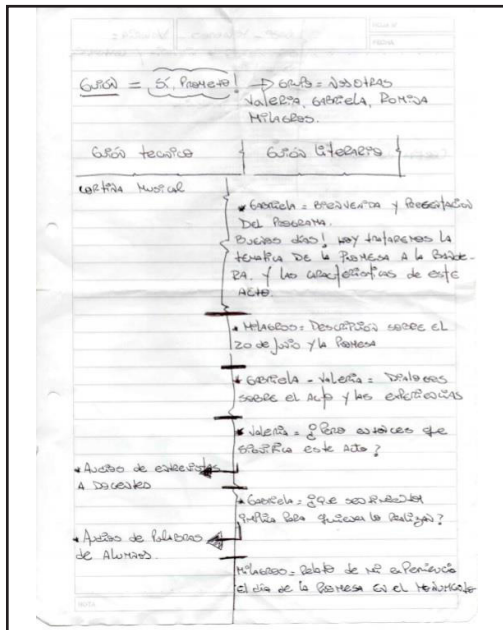 HOJA Nº
FECHA
GUIÓN = SÍ, PROMETO! → GRUPO = NOSOTRAS
VALERIA, GABRIELA, ROMINA
MILAGROS.
GUIÓN TECNICO
GUIÓN LITERARIO
CORTINA MUSICAL
* GABRIELA = BIENVENIDA Y PRESENTACION
DEL PROGRAMA.
BUENOS DÍAS! HOY TRATAREMOS LA
TEMATICA DE LA PROMESA A LA BANDE-
RA. Y LAS CARACTERISTICAS DE ESTE
ACTO.
* MILAGROS = DESCRIPCIÓN SOBRE EL
20 de JUNIO Y LA PROMESA
* GABRIELA - VALERIA = DIALOGOS
SOBRE EL ACTO Y LAS EXPERIENCIAS
* VALERIA = ¿PERO ENTONCES QUE
SIGNIFICA ESTE ACTO?
* AUDIOS DE ENTREVISTAS
A DOCENTES
* GABRIELA = ¿QUE
IMPLICA PARA QUIENES LO REALIZAN?
* AUDIOS DE PALABRAS
de ALUMNOS.
MILAGROS = RELATO DE MI EXPERIENCIA
EL DÍA DE LA PROMESA EN EL MONUMENTO